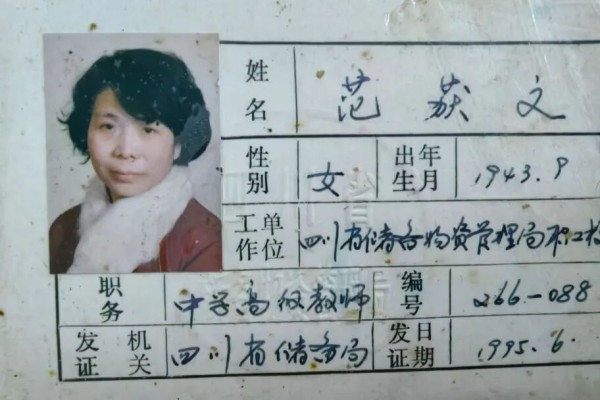 姓名 范荻文
性别 女 出生年月 1943.9
工作单位 四川省储备物资管理局职工校
职务 中学高级教师 编号 266-088
发证机关 四川省储备局 发证日期 1995.6.